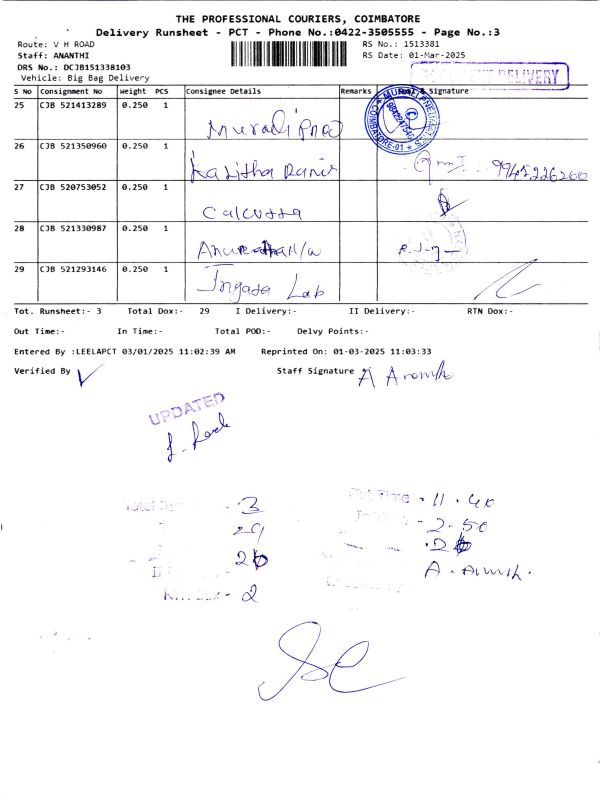 THE PROFESSIONAL COURIERS, COIMBATORE
Delivery Runsheet - PCT - Phone No.:0422-3505555 - Page No.:3
Route: V H ROAD RS No.: 1513381
Staff: ANANTHI RS Date: 01-Mar-2025
DRS No.: DCJB151338103
Vehicle: Big Bag Delivery DELIVERY
S No Consignment No Weight PCS Consignee Details Remarks & Signature
25 CJB 521413289 0.250 1
26 CJB 521350960 0.250 1 9945226200
27 CJB 520753052 0.250 1 Calcutta
28 CJB 521330987 0.250 1
29 CJB 521293146 0.250 1 Lab
Tot. Runsheet:- 3 Total Dox:- 29 I Delivery:- II Delivery:- RTN Dox:-
Out Time:- In Time:- Total POD:- Delvy Points:-
Entered By :LEELAPCT 03/01/2025 11:02:39 AM Reprinted On: 01-03-2025 11:03:33
Verified By Staff Signature
UPDATED
3 Time - 11.40
29 - 2.50
26
- 2